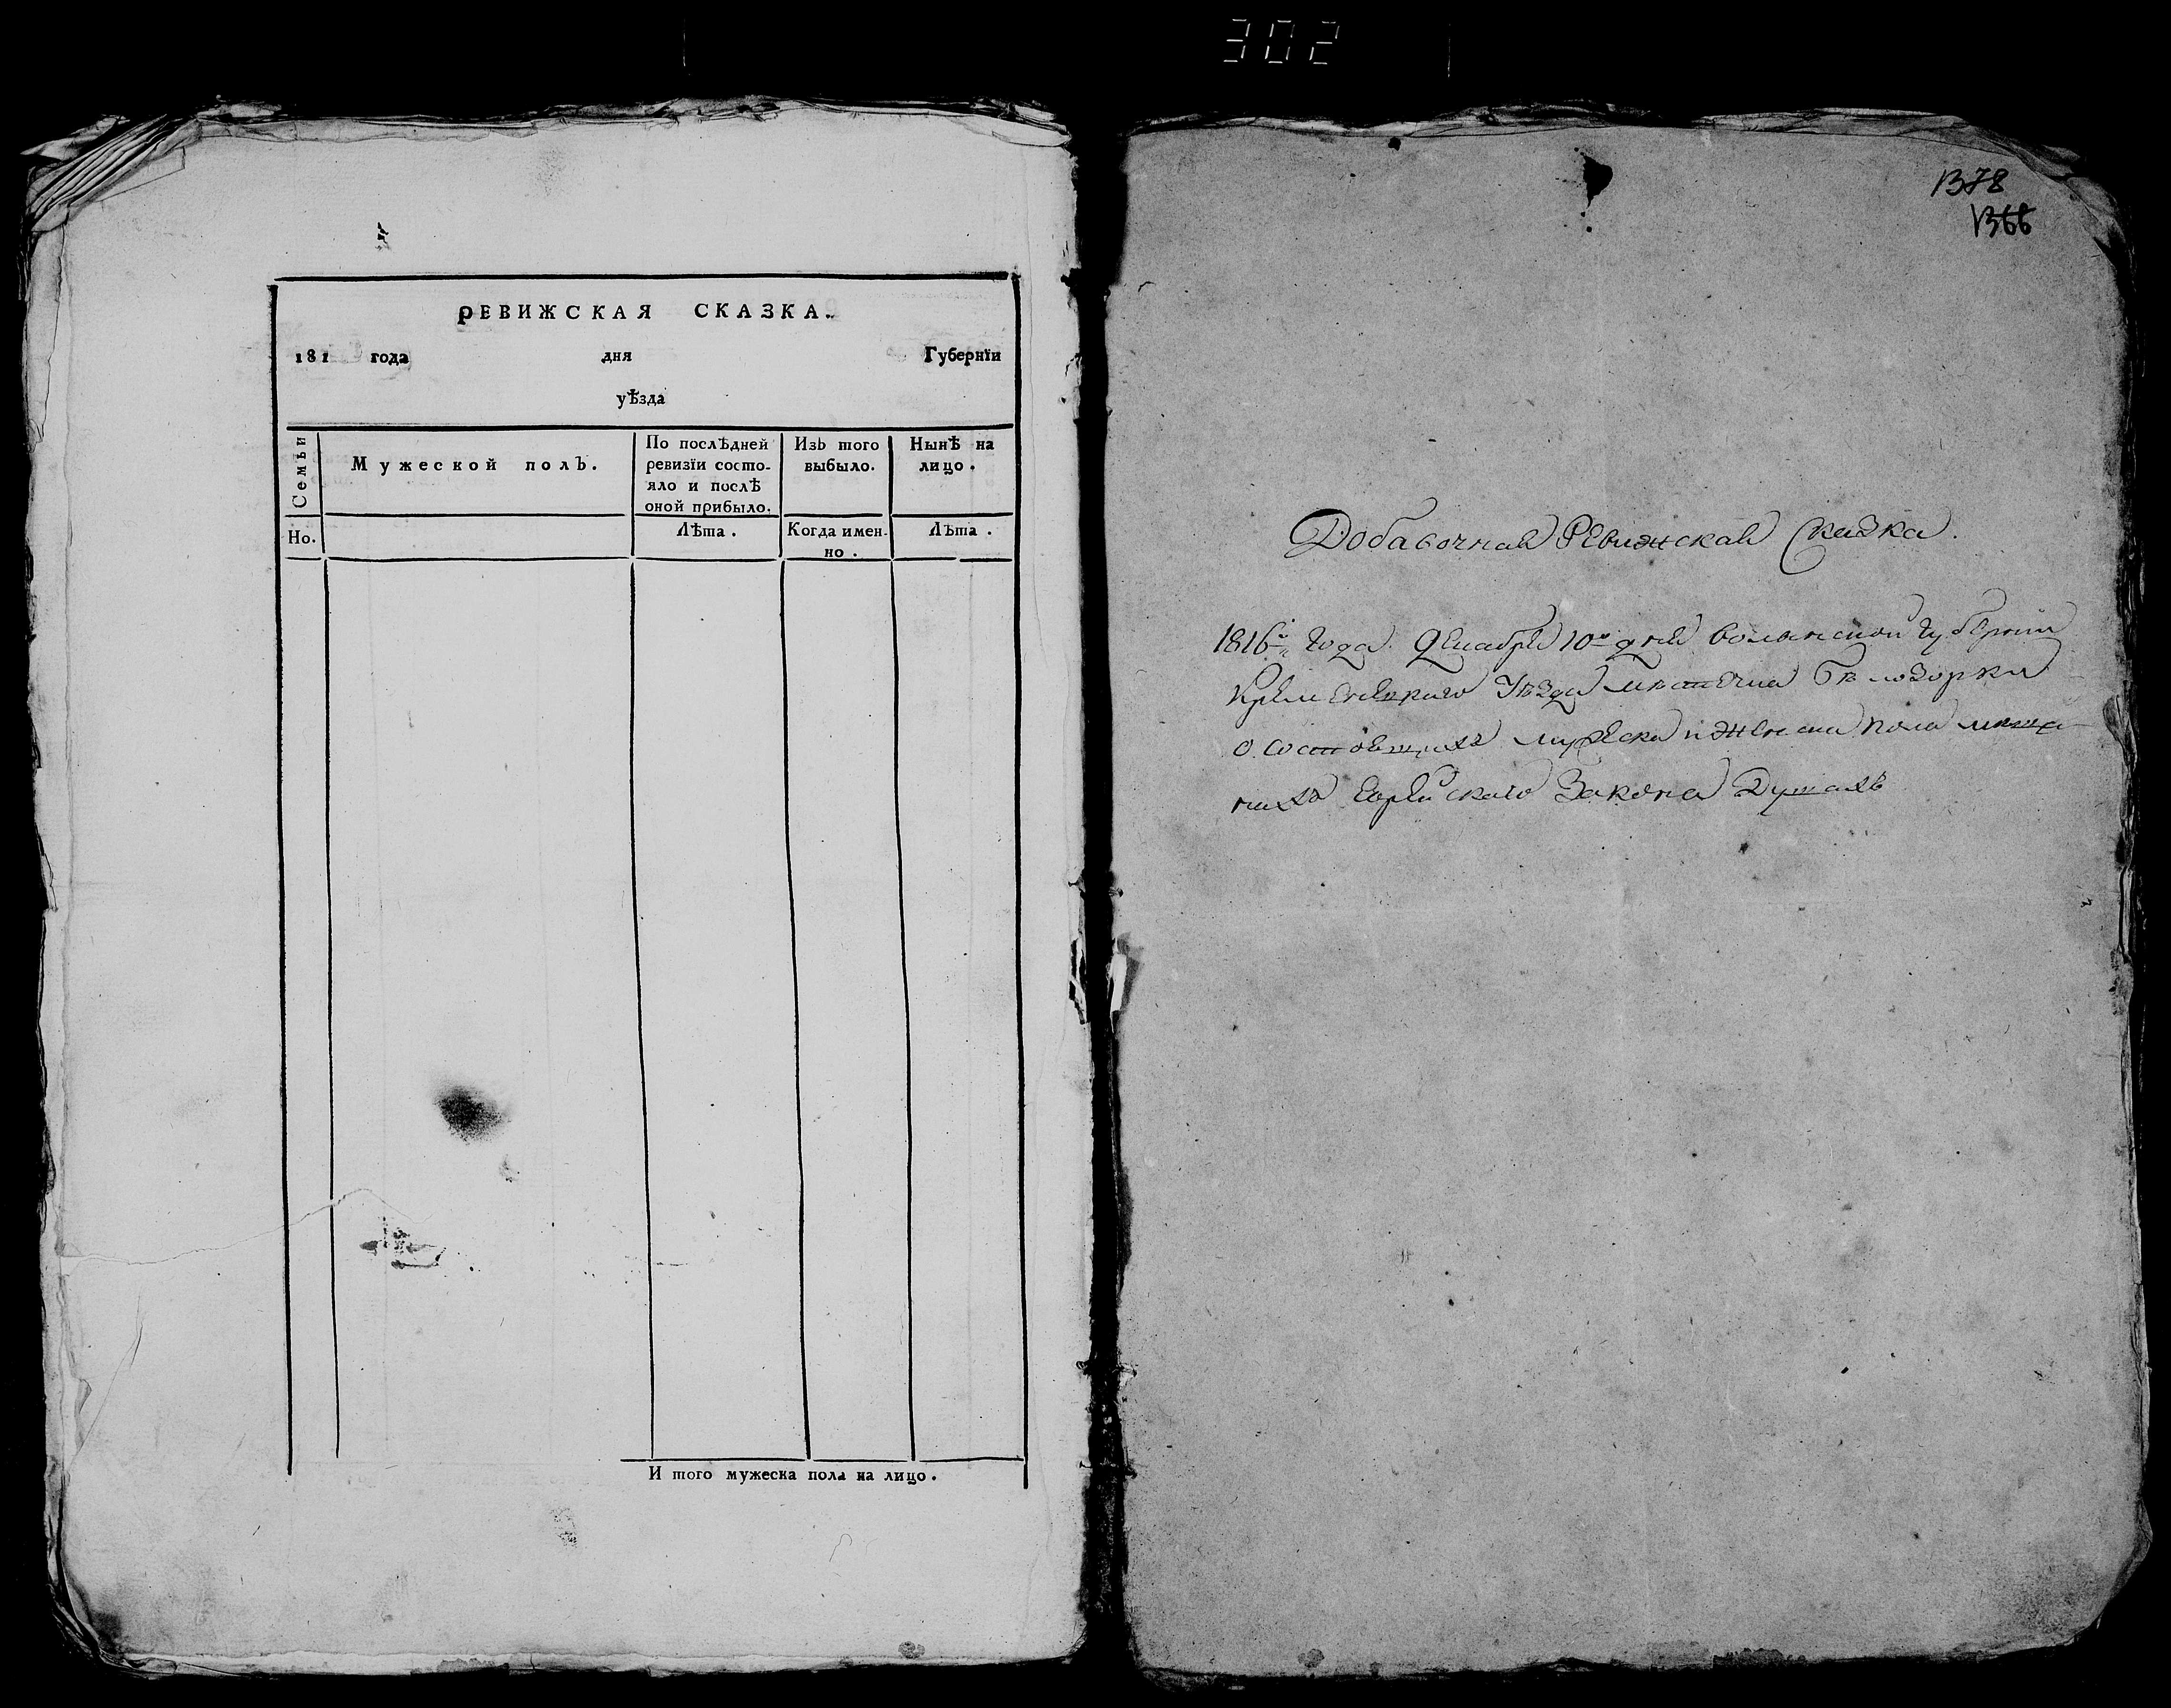 302
РЕВИЖСКАЯ СКАЗКА.
181 года дня Губернїи
уѣзда
Семьи
Мужеской полъ.
По послѣдней ревизїи состо-
яло и послѣ оной прибыло.
Изъ того выбыло.
Нынѣ на лицо.
Но.
Лѣта.
Когда имен-
но.
Лѣта.
И того мужеска пола на лицо.
1378
1366
Добавочная Ревижская Сказка.
1816го года Декабря 10го дня волынской губернїи
Кременецкаго Уѣзда мѣстечка Бѣлозорки
о состоящихъ мужеска и женска пола мѣща
нахъ Еврейскаго Закона Душахъ